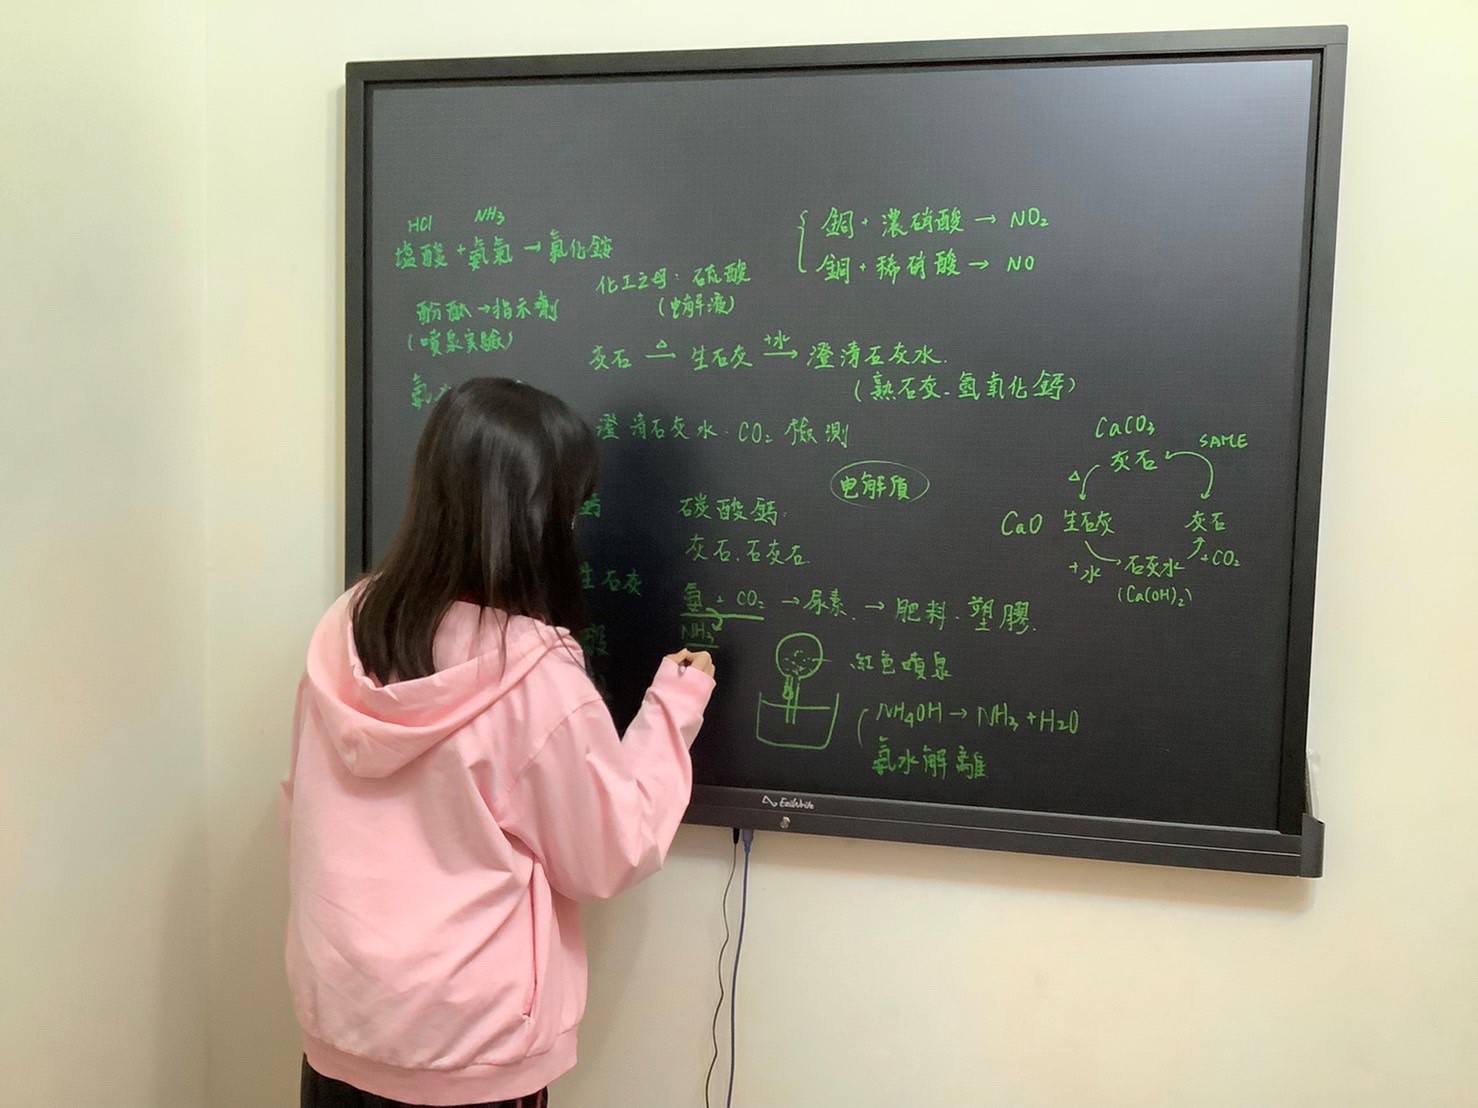 HCl NH₃
塩酸 + 氨氣 → 氯化銨
酚酞 → 指示劑
(噴泉實驗)
化工之母：硫酸
(电解液)
{ 銅 + 濃硝酸 → NO₂
銅 + 稀硝酸 → NO
灰石 △→ 生石灰 +水→ 澄清石灰水.
(熟石灰、氫氧化鈣)
氨水
澄清石灰水. CO₂ 檢測
电解質
鈣
碳酸鈣.
灰石、石灰石.
生石灰
酸
氨 + CO₂ → 尿素. → 肥料、塑膠.
NH₃
紅色噴泉
NH₄OH → NH₃ + H₂O
氨水解離
CaCO₃
灰石
SAME
△
CaO 生石灰 灰石
+水 石灰水 +CO₂
(Ca(OH)₂)
EziWrite